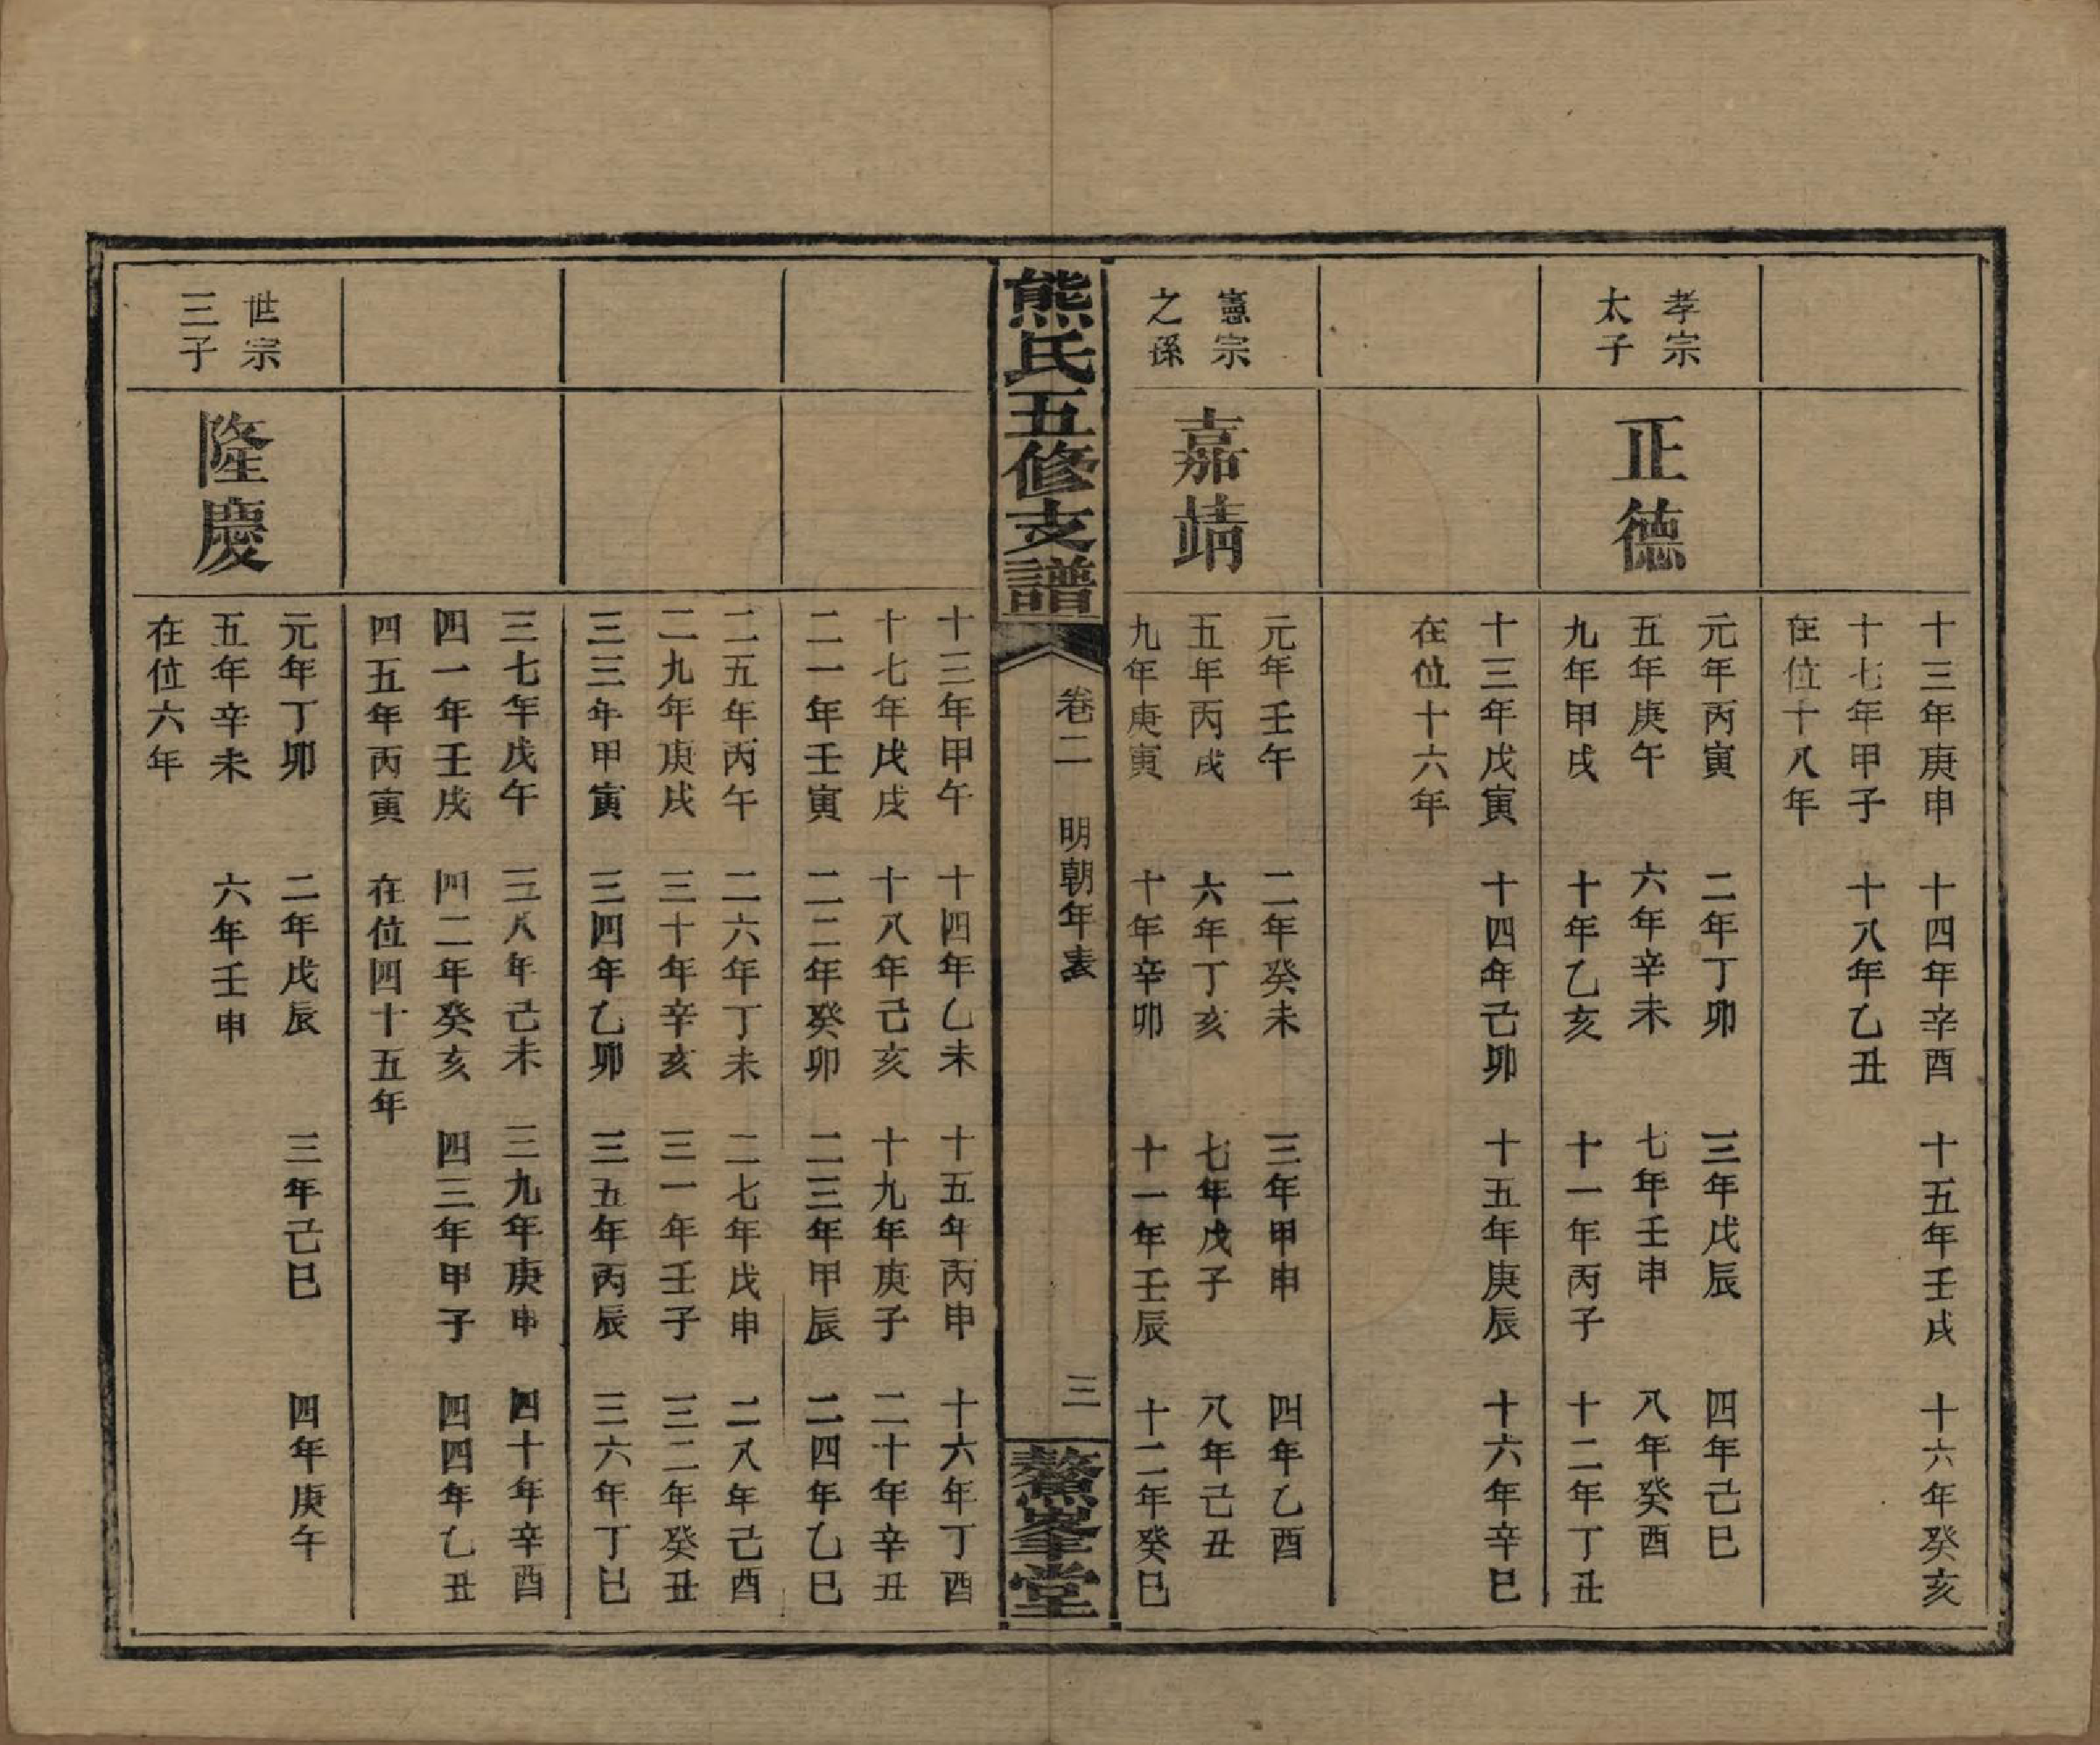 十三年庚申　十四年辛酉　十五年壬戌　十六年癸亥
十七年甲子　十八年乙丑
在位十八年
孝宗
太子
正德
元年丙寅　二年丁卯　三年戊辰　四年己巳
五年庚午　六年辛未　七年壬申　八年癸酉
九年甲戌　十年乙亥　十一年丙子　十二年丁丑
十三年戊寅　十四年己卯　十五年庚辰　十六年辛巳
在位十六年
憲宗
之孫
嘉靖
元年壬午　二年癸未　三年甲申　四年乙酉
五年丙戌　六年丁亥　七年戊子　八年己丑
九年庚寅　十年辛卯　十一年壬辰　十二年癸巳
熊氏五修支譜　卷二　明朝年表　三　鰲峯堂
十三年甲午　十四年乙未　十五年丙申　十六年丁酉
十七年戊戌　十八年己亥　十九年庚子　二十年辛丑
二一年壬寅　二二年癸卯　二三年甲辰　二四年乙巳
二五年丙午　二六年丁未　二七年戊申　二八年己酉
二九年庚戌　三十年辛亥　三一年壬子　三二年癸丑
三三年甲寅　三四年乙卯　三五年丙辰　三六年丁巳
三七年戊午　三八年己未　三九年庚申　四十年辛酉
四一年壬戌　四二年癸亥　四三年甲子　四四年乙丑
四五年丙寅　在位四十五年
世宗
三子
隆慶
元年丁卯　二年戊辰　三年己巳　四年庚午
五年辛未　六年壬申
在位六年